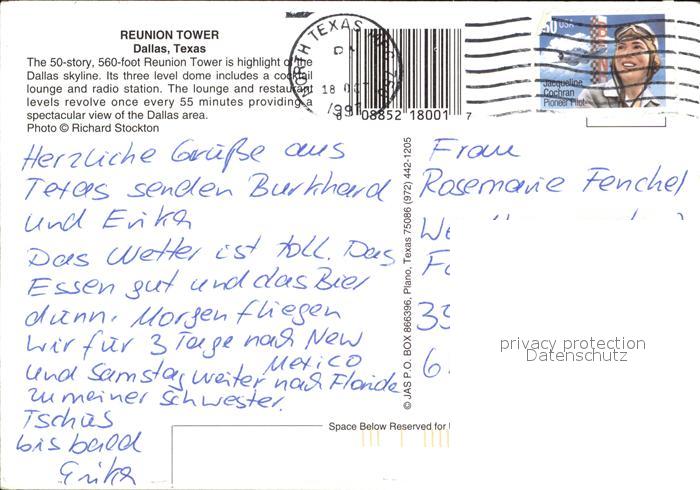 REUNION TOWER
Dallas, Texas
The 50-story, 560-foot Reunion Tower is highlight of the
Dallas skyline. Its three level dome includes a cocktail
lounge and radio station. The lounge and restaurant
levels revolve once every 55 minutes providing a
spectacular view of the Dallas area.
Photo © Richard Stockton
NORTH TEXAS
18 OCT
1997
08852 18001 7
50 USA
Jacqueline
Cochran
Pioneer Pilot
Herzliche Grüße aus
Texas senden Burkhard
und Erika
Das Wetter ist toll. Das
Essen gut und das Bier
dünn. Morgen fliegen
wir für 3 Tage nach New
Mexico
und Samstag weiter nach Florida
zu meiner Schwester.
Tschüs
bis bald
Erika
© JAS P.O. BOX 866396, Plano, Texas 75086 (972) 442-1205
Frau
Rosemarie Fenchel
We
Fo
35
6.
privacy protection
Datenschutz
Space Below Reserved for